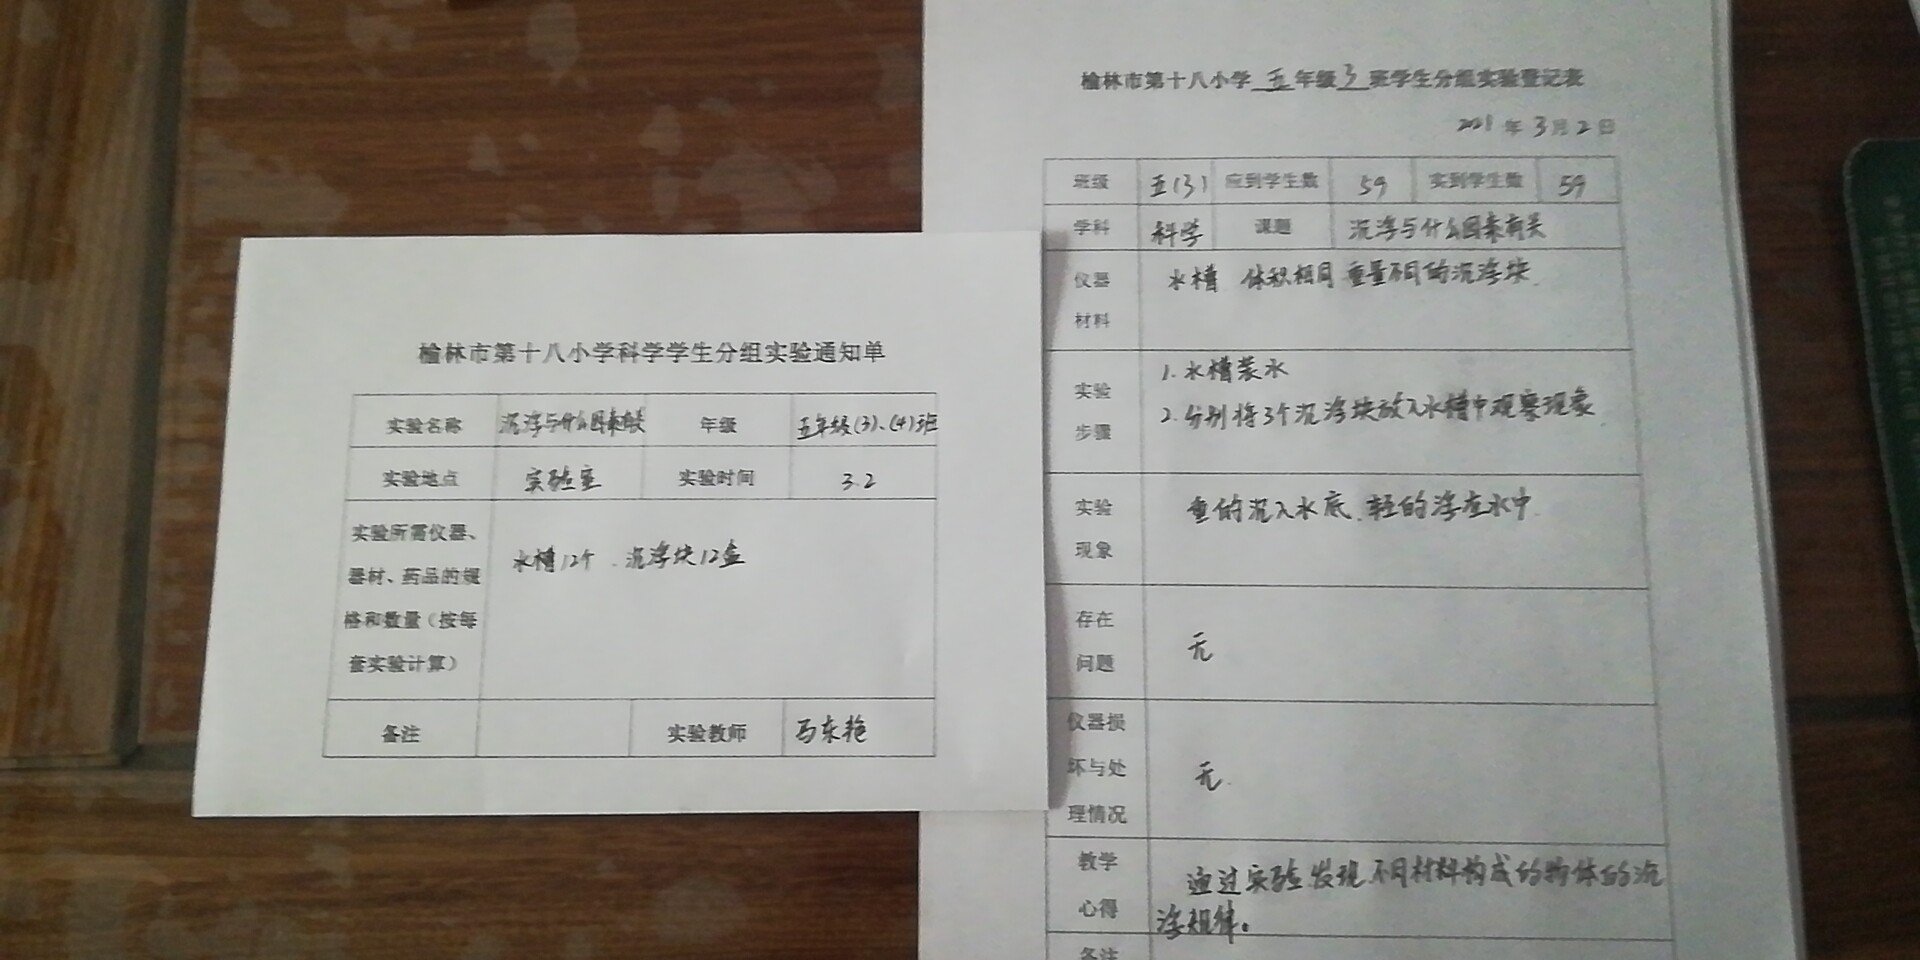 榆林市第十八小学科学学生分组实验通知单
实验名称 沉浮与什么因素有关 年级 五年级(3)、(4)班
实验地点 实验室 实验时间 3.2
实验所需仪器、
器材、药品的规
格和数量（按每
套实验计算）
水槽12个 、沉浮块12盒
备注 实验教师 马东艳
榆林市第十八小学 五 年级 3 班学生分组实验登记表
2021 年 3 月 2 日
班级 五(3) 应到学生数 59 实到学生数 59
学科 科学 课题 沉浮与什么因素有关
仪器
材料
水槽 体积相同 重量不同的沉浮块.
实验
步骤
1. 水槽装水
2. 分别将3个沉浮块放入水槽中观察现象
实验
现象
重的沉入水底、轻的浮在水中.
存在
问题
无
仪器损
坏与处
理情况
无.
教学
心得
通过实验发现不同材料构成的物体的沉
浮规律。
备注